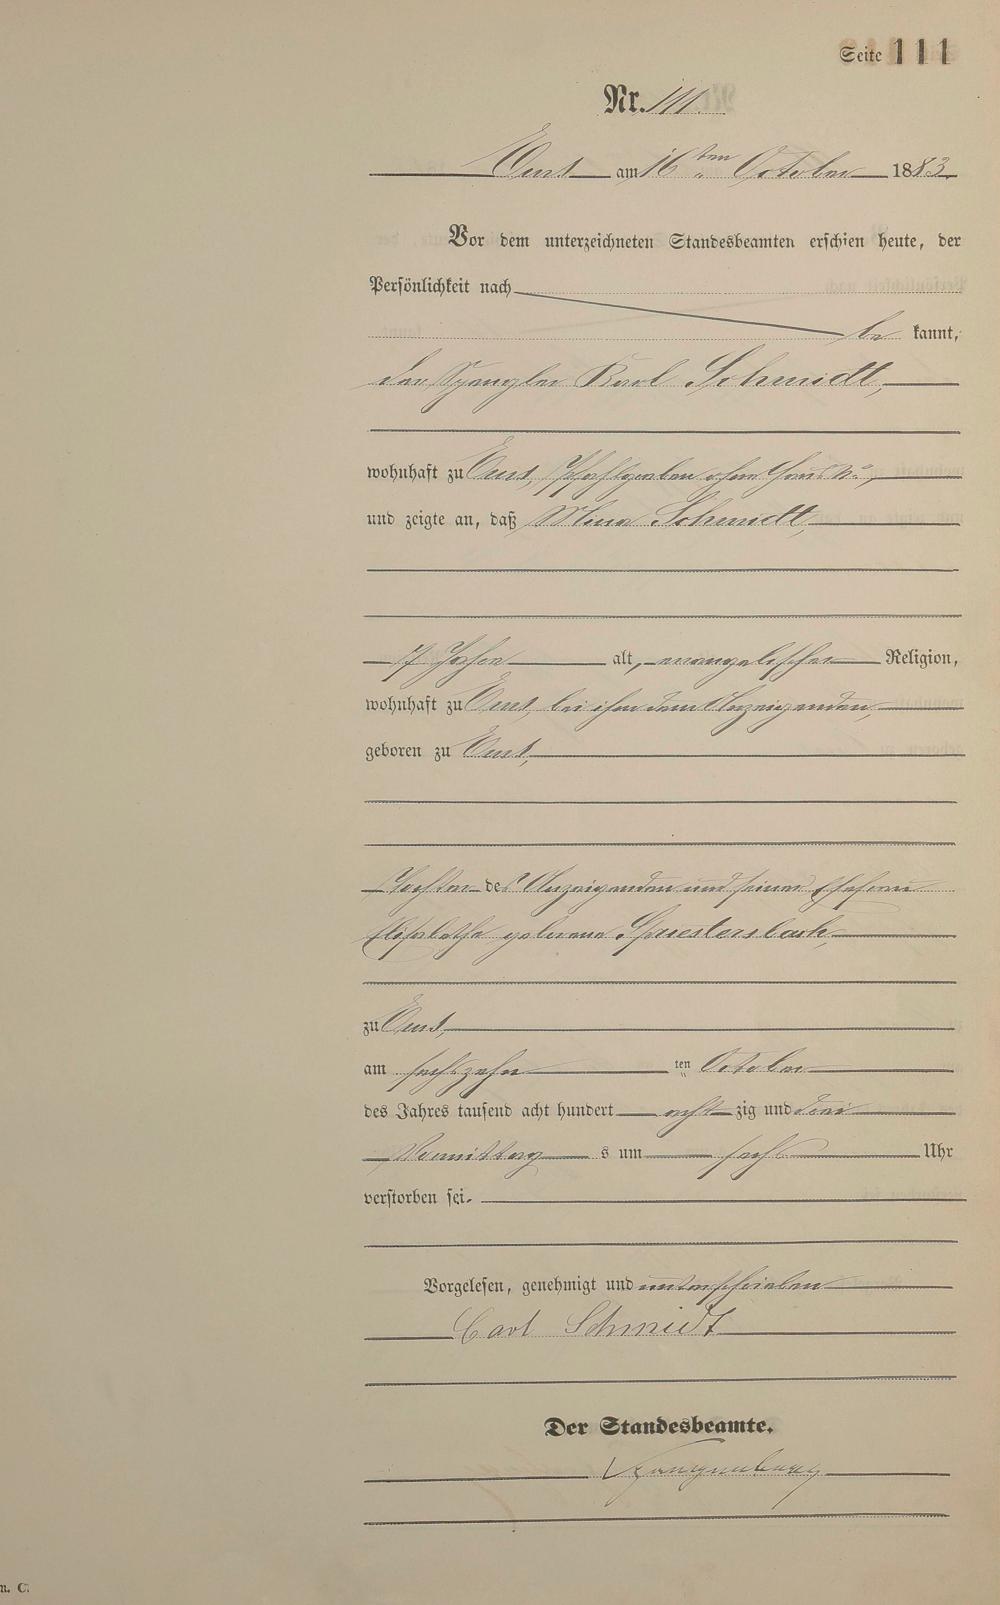 Seite 111
Nr. 111.
Ems am 16ten October 1883.
Vor dem unterzeichneten Standesbeamten erschien heute, der
Persönlichkeit nach
be kannt,
der Spengler Karl Schmidt,
wohnhaft zu Ems, Pfahlgraben ohne Haus No,
und zeigte an, daß Mina Schmidt,
7 Jahre alt, evangelischer Religion,
wohnhaft zu Ems, bei ihm dem Anzeigenden,
geboren zu Ems,
Tochter des Anzeigenden und seiner Ehefrau
Elisabethe geborene
zu Ems,
am sechszehn ten October
des Jahres tausend acht hundert acht zig und drei
Vormittag s um sechs Uhr
verstorben sei.
Vorgelesen, genehmigt und unterschrieben
Carl Schmidt
Der Standesbeamte.
n. C.